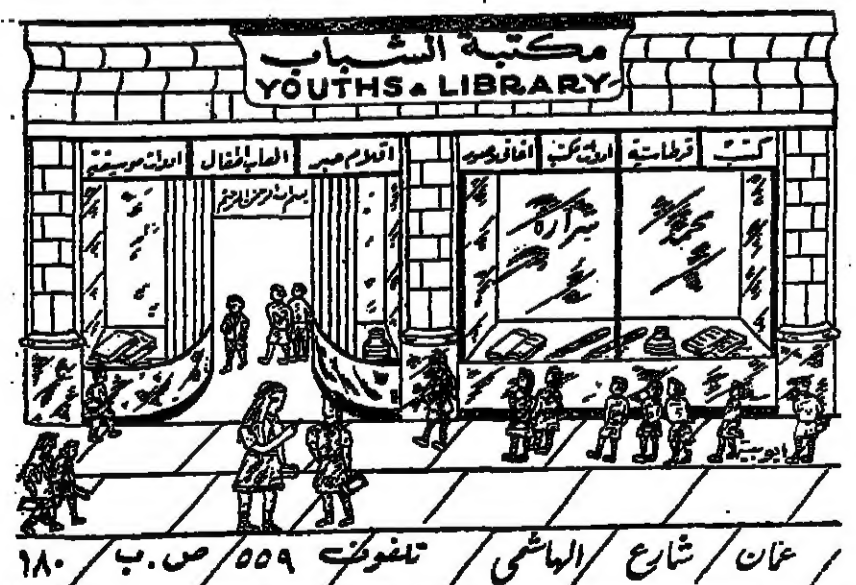 مكتبة الشباب
YOUTHS LIBRARY
كتب قرطاسية ادوات مكتب اغاني وصور
اقلام حبر العاب اطفال ادوات موسيقية
بسم الله الرحمن الرحيم
محمد شرارة
عمان شارع الهاشمي تلفون ٥٥٩ ص.ب ١٨٠